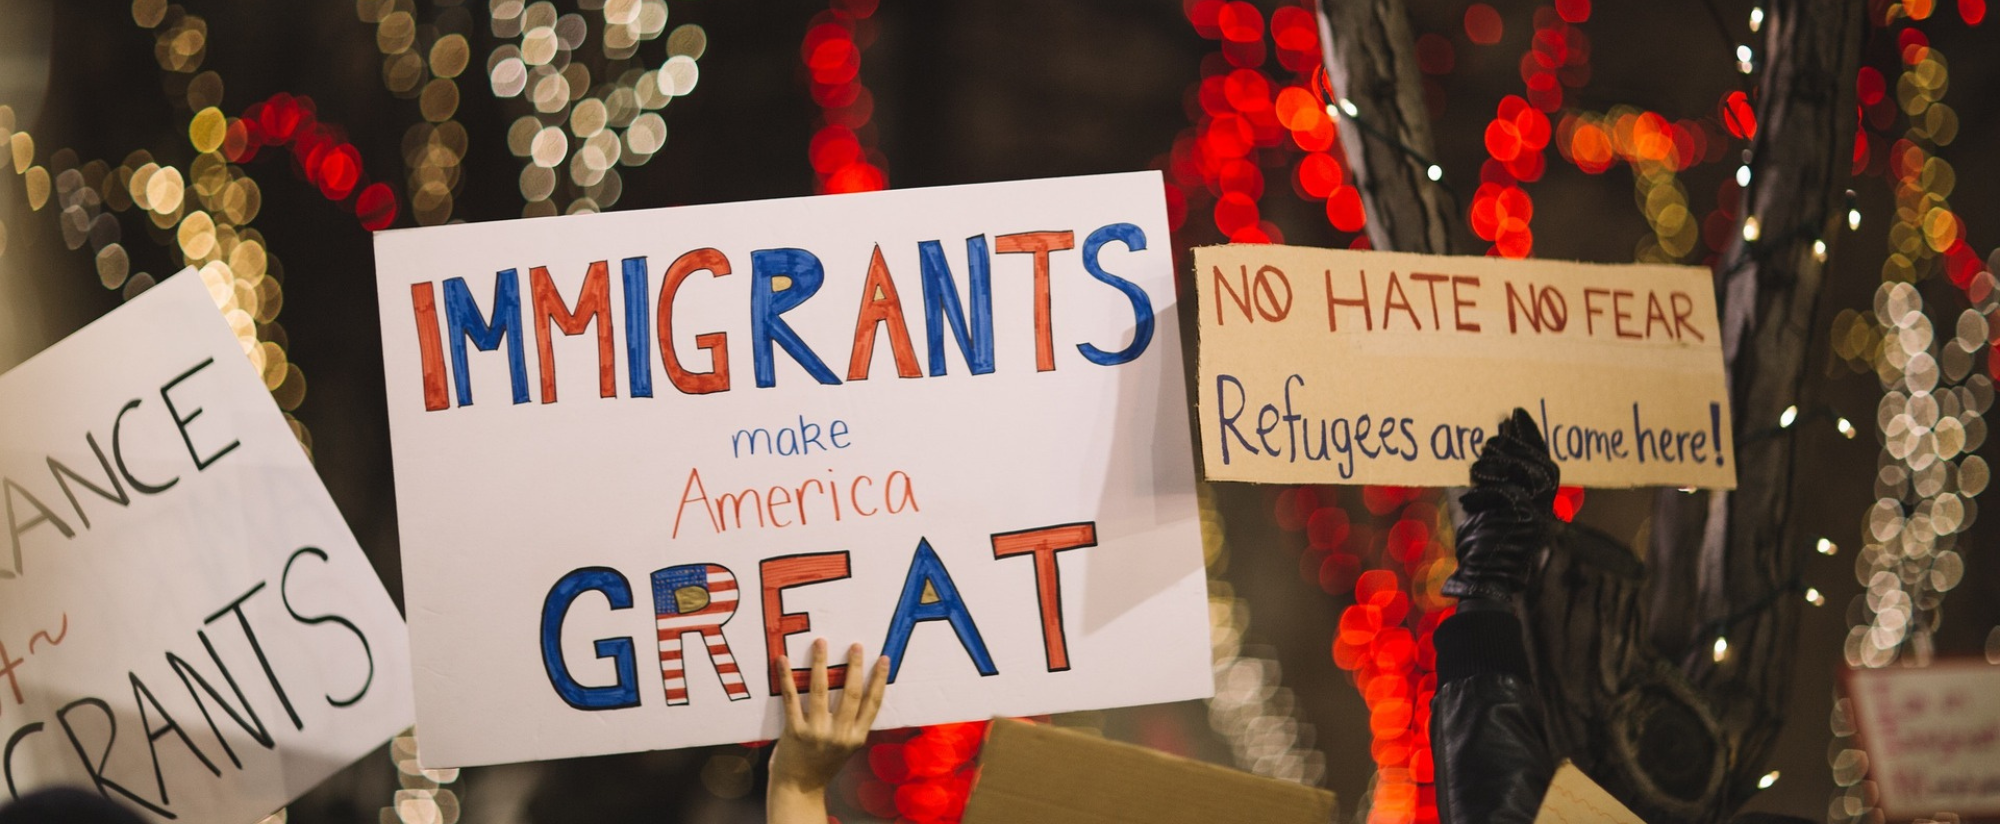 ANCE
GRANTS
IMMIGRANTS
make
America
GREAT
NO HATE NO FEAR
Refugees are welcome here!